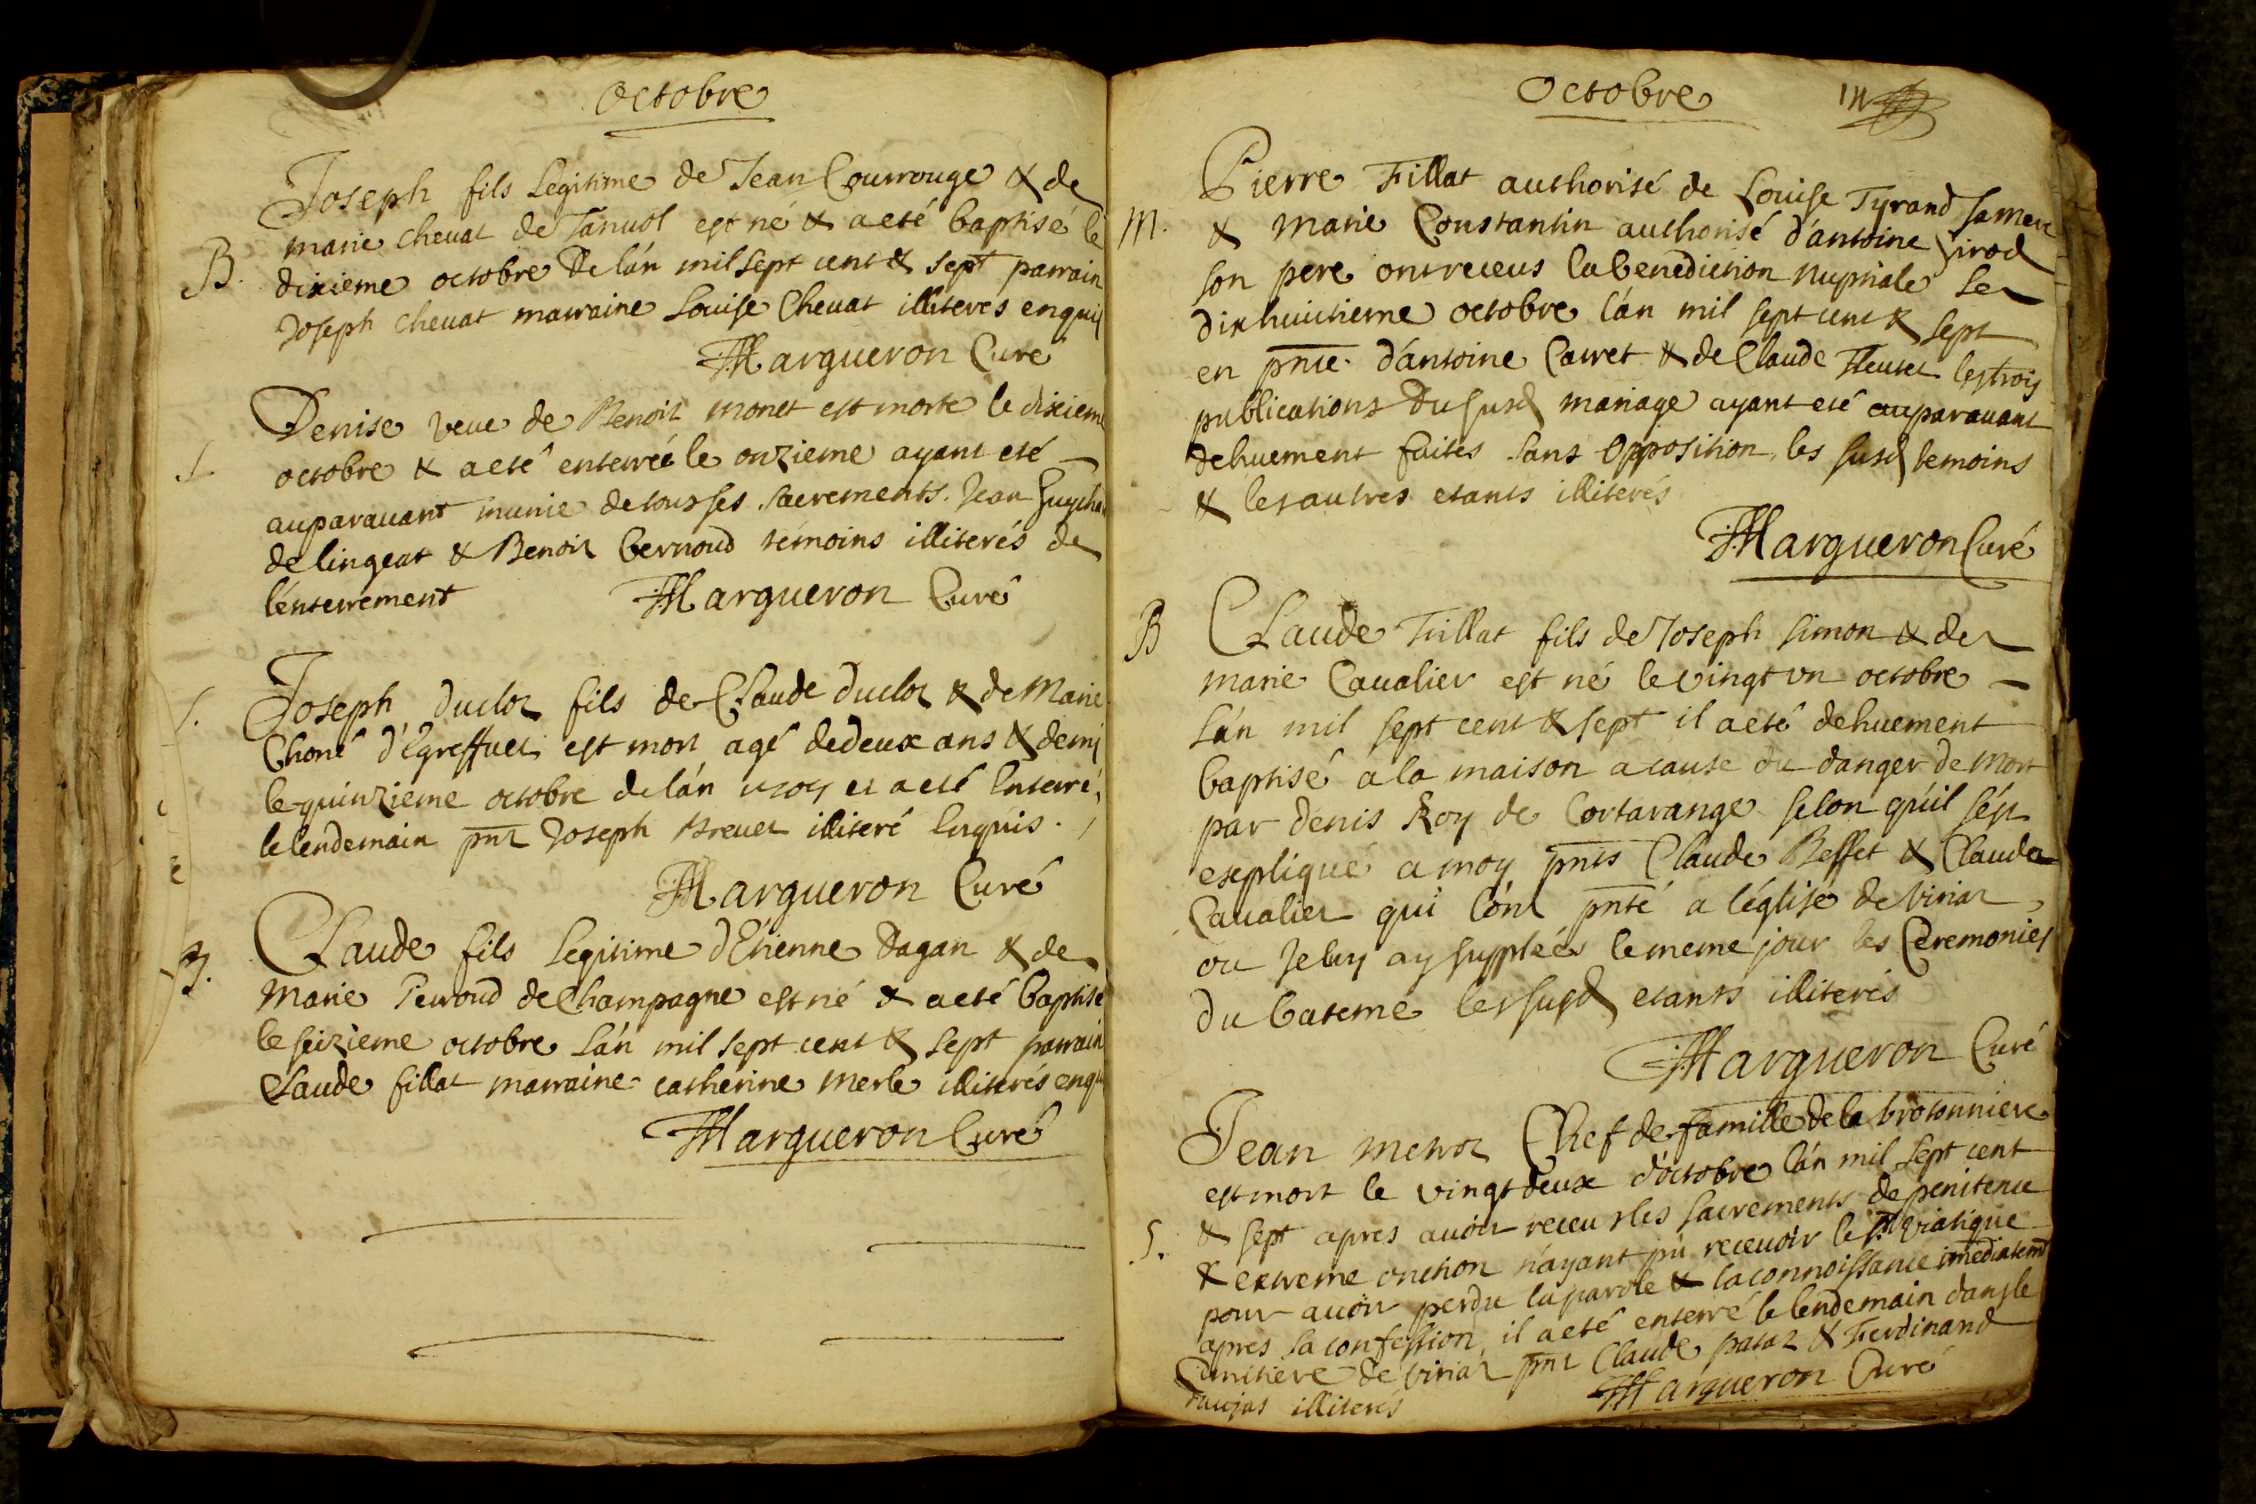 Octobre
Joseph fils Legitime de Jean Courrouge & de
marie chevat de Tanvol est né & a eté baptisé le
B.
dixieme octobre De lán mil sept cent & sept parrain
Joseph chevat marraine Louise Chevat illiteres enquis
Margueron Curé
Denise veue de Benoit monet est morte le dixieme
S.
octobre & a eté enterrée le onzieme ayant eté
auparavant munie de tous ses sacrements. Jean
de lingeat & Benoit bernoud témoins illiterés de
lénterrement Margueron Curé
S.
Joseph duclot fils de Claude duclot & de Marie
Choné d'Egreffuet est mort agé de deux ans & demi
le quinzieme octobre de lán 1707 et a eté Enterré,
le lendemain pnt Joseph Brevet illiteré Enquis.
Margueron Curé
B.
Claude fils Legitime d'Etienne Dagan & de
Marie Perroud de Champagne est né & a eté baptisé
le seizieme octobre Lán mil sept cent & sept parrain
Claude fillat marraine catherine merle illiterés enq
Margueron Curé
Octobre
Pierre Fillat authorisé de Louise Tyrand sa mere
M.
& Marie Constantin authorisé d'antoine
son pere ont receus la benediction nuptiale Le
dixhuictieme octobre lán mil sept cent & sept
en pnce. d'antoine Carret & de Claude Fleutet les trois
publications du susd mariage ayant eté auparavant
dehuement faites sans Opposition, les susd temoins
& les autres etants illiterés
Margueron Curé
B
Claude Fillat fils de Joseph simon & de
marie Cavalier est né le vingt un octobre
Lán mil sept cent & sept il a eté dehuement
baptisé a la maison a cause du danger de mort
par denis Roy de Cortarange selon qu'il s'ést
expliqué a moy pnts Claude Beffet & Claude
Cavalier qui lónt pnté a léglise de viriat
ou Je luy ay supplées le meme jour les Ceremonies
du bateme les susd etants illiterés
Margueron Curé
Jean Chef de famille de la brotonniere
est mort le vingt deux d'octobre lán mil sept cent
S.
& sept apres avoir receu les sacrements de penitence
& extreme onction n'ayant pu recevoir le st viatique
pour avoir perdu la parole & la connoissance imediatemt
apres sa confession, il a eté enterré le lendemain dans le
Cimitiere de viriat pnt Claude patat & Ferdinand
illiterés Margueron Curé